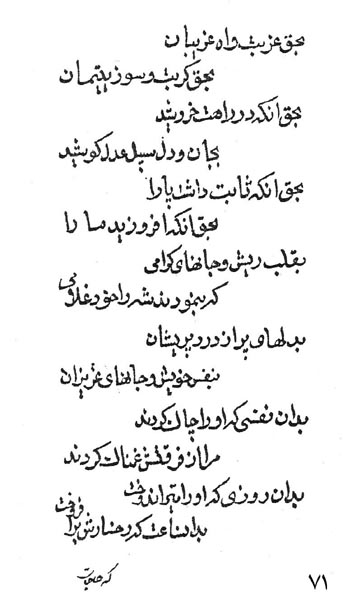 بحق غربت و اه غریبان
بحق کربت و سوز یتیمان
بحق انکه در راهت خروشد
بجان و دل سبیل عدل کوشد
بحق انکه ثابت داشت پا را
بحق انکه افروزید ما را
بقلب ریش و جانهای کرامی
که بنمودند شه را خود غلامی
بدلهای پر از درد پریشان
بنفس خویش و جانهای عزیزان
بدان نفسی که او را چاک کردند
مرا از فرقتش غمناک کردند
بدان روزی که او را
بدان ساعت که رخسارش
که
۷۱